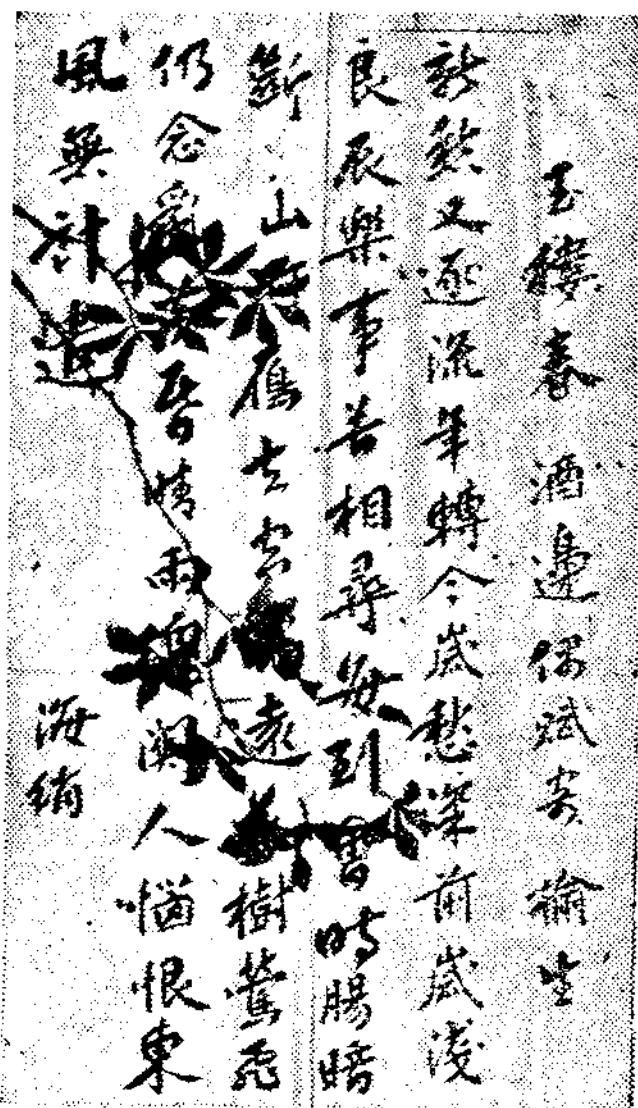 玉樓春 酒邊偶賦寄 榆生
新愁又逐流年轉今歲愁深前歲淺
良辰樂事苦相尋每到會時腸暗
斷 山河雁去空懷遠花樹鶯飛
仍念亂黃昏晴雨總關人惱恨東
風無計遣
海綃